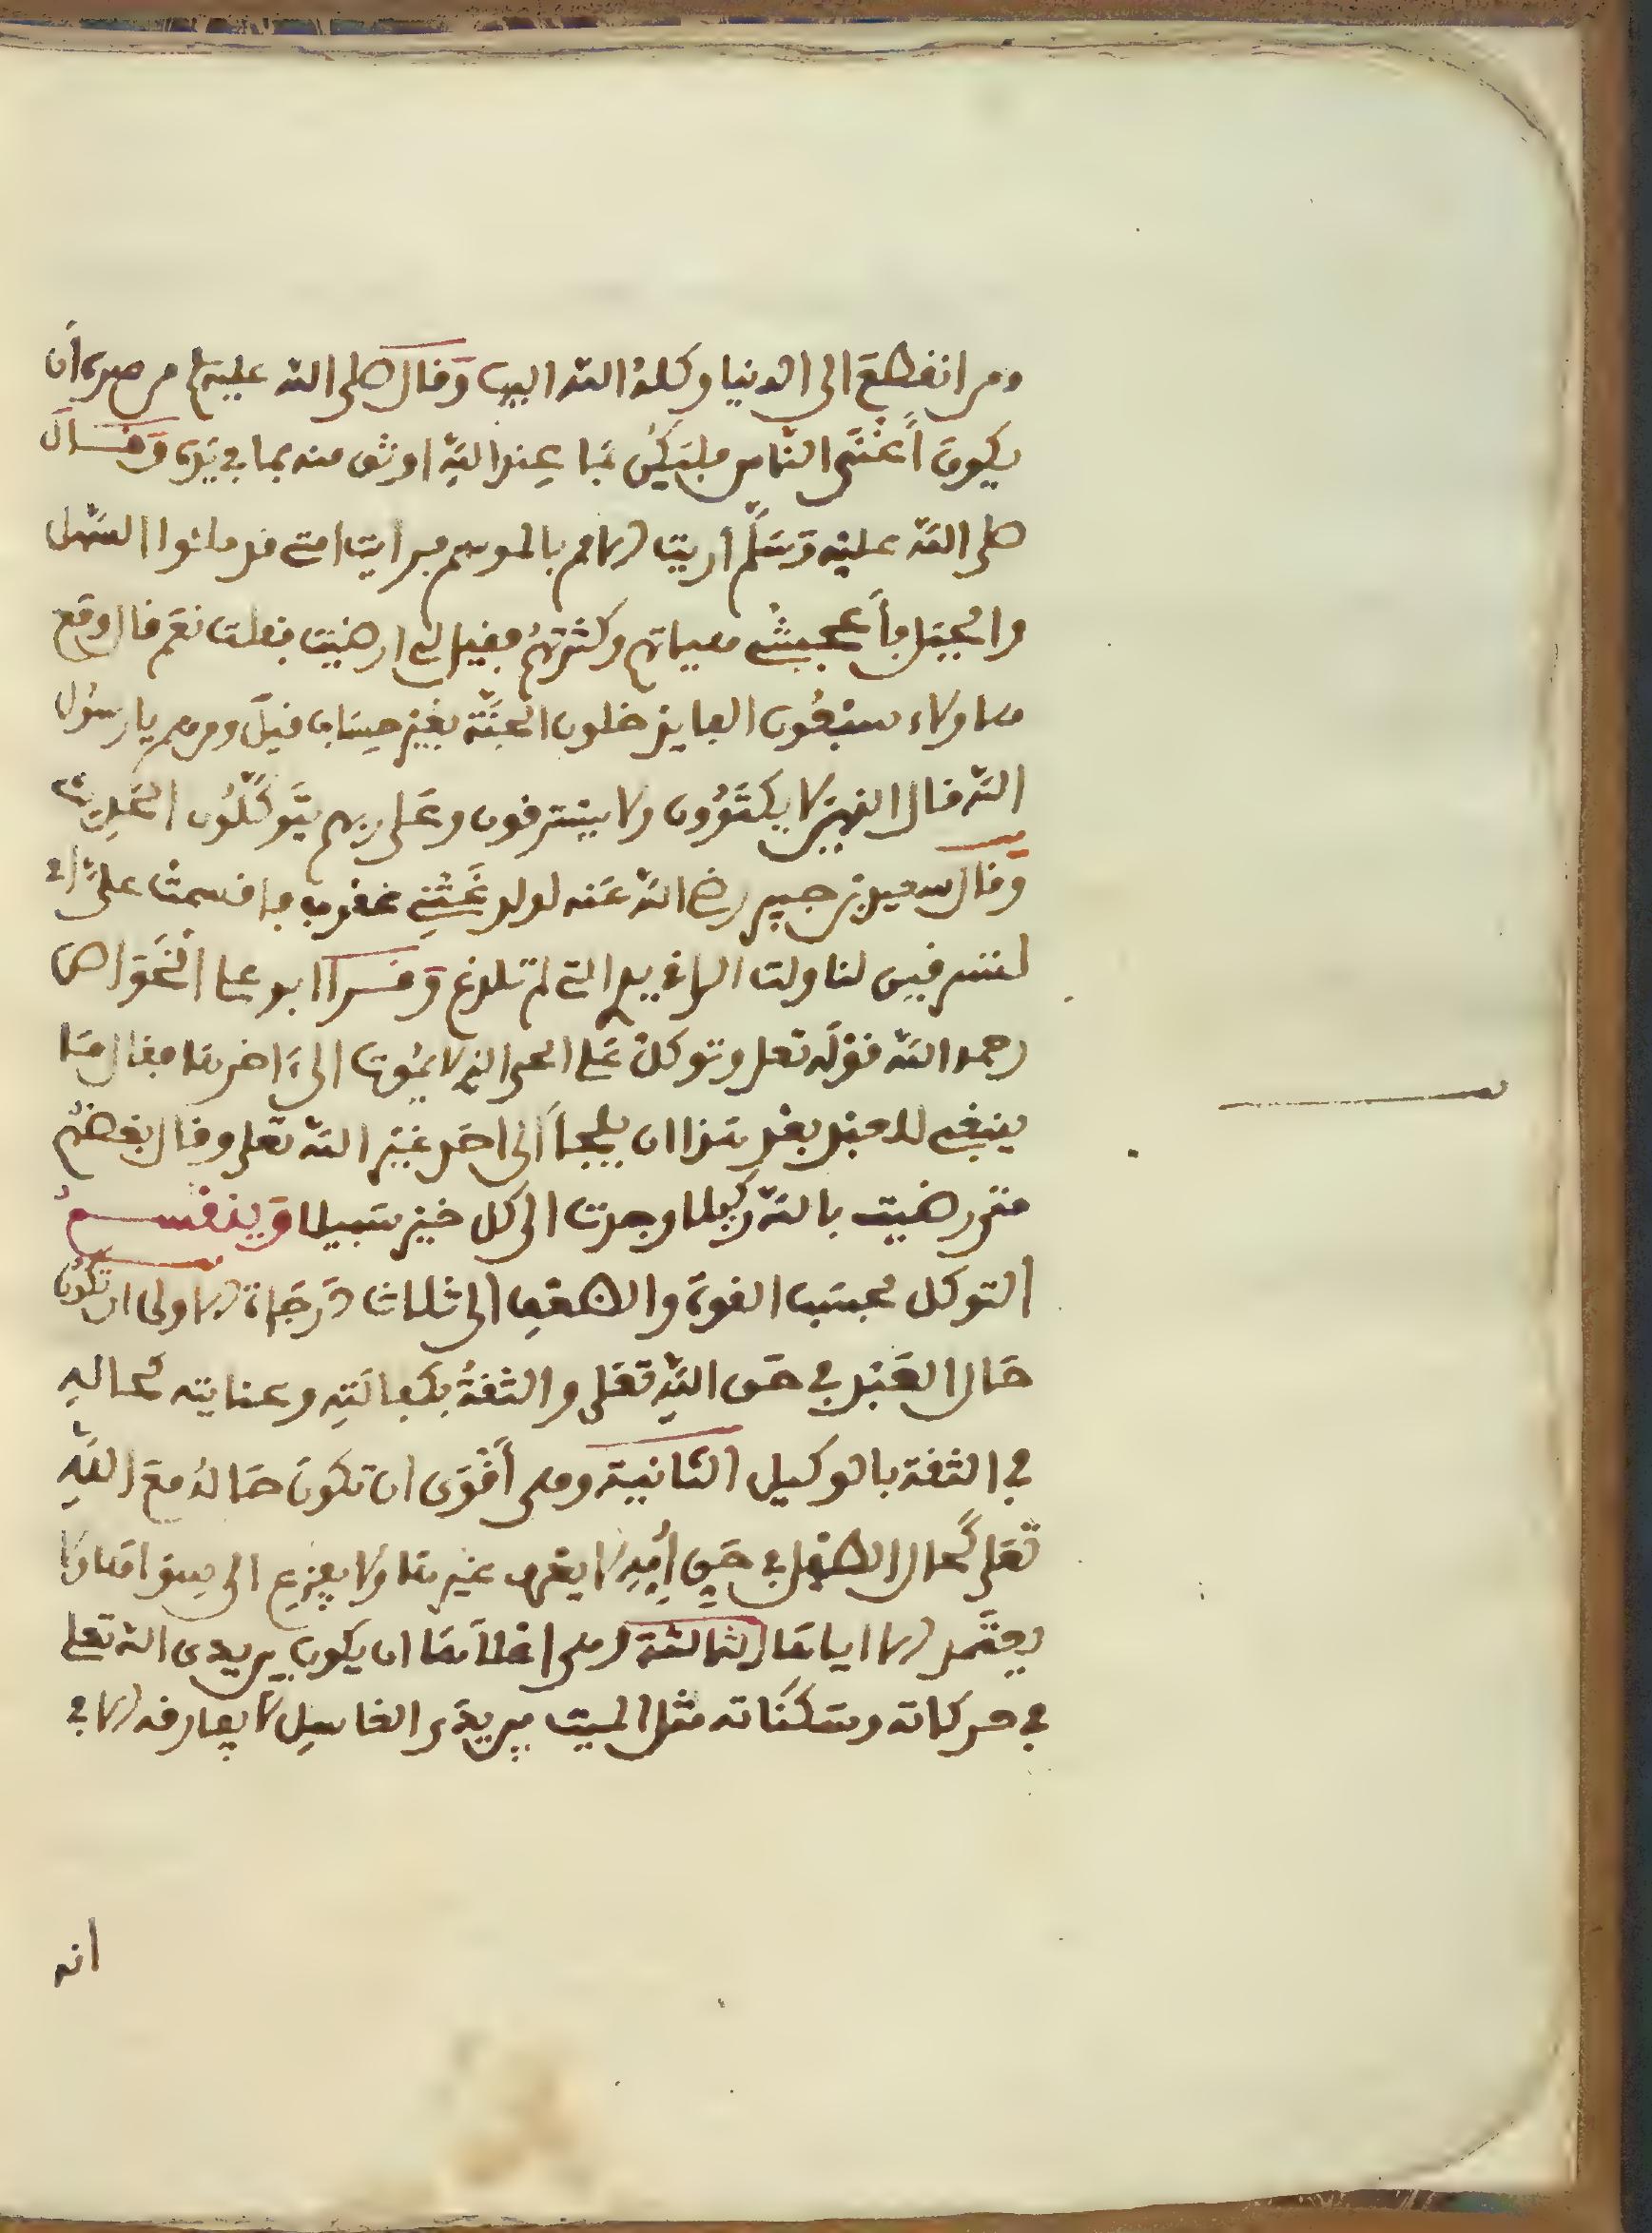 ومن انقطع الى الدنيا وكله الله اليها وقال صلى الله عليه من سره أن
يكون أغنى الناس فليكن بما عند الله اوثق منه بما في يده وقال
صلى الله عليه وسلم أريت الامم بالموسم فرأيت امتي قد ملئوا السهل
والجبل فأعجبتني هيأتهم وكثرتهم فقيل لي ارضيت فقلت نعم قال ومع
هاولاء سبعون الفا يدخلون الجنة بغير حساب قيل ومن هم يا رسول
الله قال الذين لا يكتوون ولا يسترقون وعلى ربهم يتوكلون الحديث
وقال سعيد بن جبير رضي الله عنه لدغتني عقرب فاقسمت علي امي
لتسترقين لناولت الراقي يدي التي لم تلدغ وقرأ ابو علي الخواص
رحمه الله قوله تعلى وتوكل على الحي الذي لا يموت الى ءاخرها فقال ما
ينبغي للعبد بعد هذا ان يلجأ الى احد غير الله تعلى وقال بعضهم
متى رضيت بالله وكيلا وجدت الى كل خير سبيلا وينقسم
التوكل بحسب القوة والضعف الى ثلاث درجاة الاولى ان تكون
حال العبد في حق الله تعلى والثقة بكفالته وعنايته كحاله
في الثقة بالوكيل الثانية وهي أقوى ان تكون حاله مع الله
تعلى كحال الطفل في حق أمه لا يعرف غيرها ولا يفزع الى سواها ولا
يعتمد الا اياها الثالثة وهي اعلاها ان يكون بين يدي الله تعلى
في حركاته وسكناته مثل الميت بين يدي الغاسل لا يفارقه الا في
انه